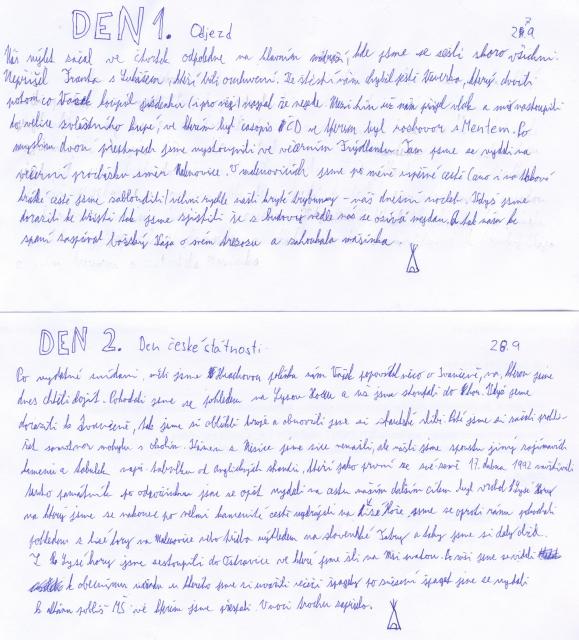 DEN 1. Odjezd 27.9
Náš výlet začal ve čtvrtek odpoledne na hlavním nádraží, kde jsme se sešli skoro všichni.
Nepřišel Franta s Lukášem, kteří byli onemocnění. Ke štěstí nám chyběl ještě Vaverka, který dvorů
potom co Vašek koupil jízdenku (i pro něj) napsal že nejede. Mezitím už nám přijel vlak a my nastoupili
do velice zvláštního kupé, ve kterém byl časopis CD ve kterém byl rozhovor s Mentem. Po
dvou přestupech jsme vystoupili ve večerním Frýdlantu. Tam jsme se vydali na
večerní procházku směr Malenovice. V malenovicích jsme po méně úspěšné cestě (ano i na takové
krátké cestě jsme zabloudili) velmi rychle našli kryté tribunny - náš dnešní nocleh. Když jsme
dorazili ke hřišti tak jsme zjistili že z budovy vedle nás se ozývá mejdan. A tak nám ke
spaní zazpíval božský Kája o svém trezoru a zahoukala mašinka.
DEN 2. Den české státnosti 28.9
Po vydatné snídani, měli jsme polívku nám Vašek popovídal něco o Ivančeně, na, kterou jsme
dnes chtěli dojít. Pokochali jsme se pohledem na Lysou Horu a už jsme stoupali do hor. Když jsme
dorazili k Ivančeně, tak jsme si oblékli kroje a obnovili jsme si skautské sliby. Poté jsme si začali prohlí-
žet samotnou mohylu s okolím. Kámen z Nisice jsme sice nenašli, ale našli jsme spoustu jiných zajímavých
kamenů a tabulek např. tabulku od anglických skautů, kteří jako první ze své země 17. dubna 1992 navštívili
tento památník. po odpočinku jsme se opět vydali na cestu naším dalším cílem byl vrchol Lysé Hory
na který jsme se nakonec po velmi kamenité cestě vyškrábali na jsme se oproti ránu pokochali
pohledem z lysé hory na Malenovice nebo třeba výhledem na slovenské Tatry a taky jsme si dali oběd.
Z Lysé hory jsme sestoupili do Ostravice ve které jsme šli na Mši svatou. Po mši jsme se vydali
k obecnímu úřadu u kterého jsme si uvařili večeři špagety po snězení špaget jsme se vydali
k poblíž MŠ ve kterém jsme přespali. V noci trochu zapršelo.